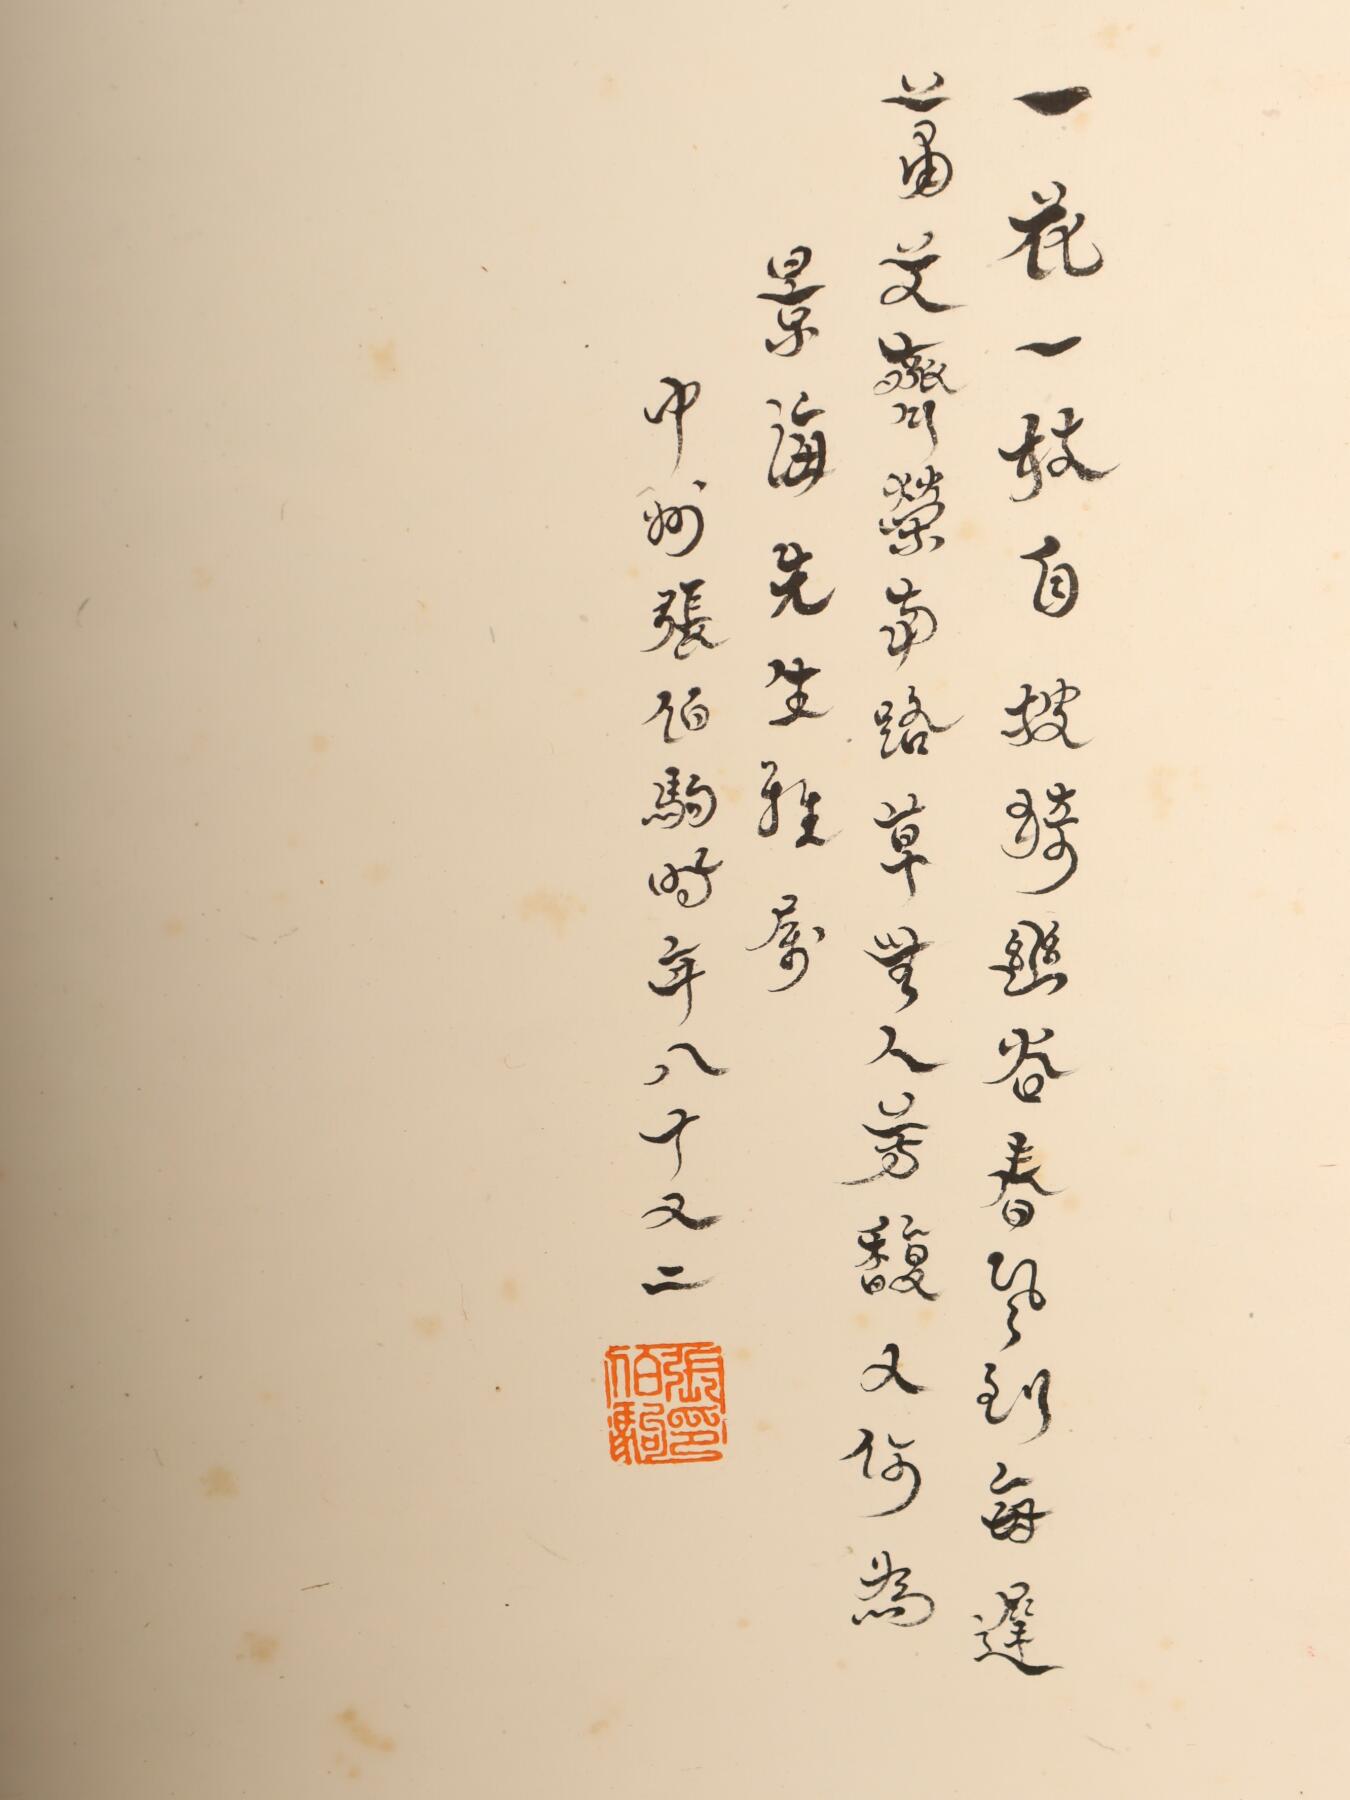 一花一枝自披猗幽谷春風到每遲
蕭艾齊榮當路草無人芳馥又何為
景海先生雅屬
中州張伯駒時年八十又二
張伯駒印